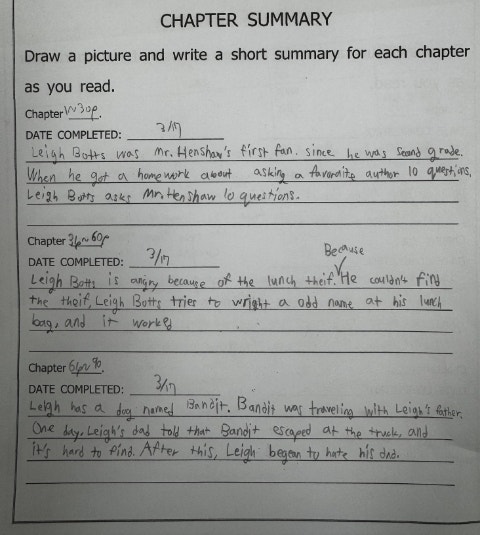 CHAPTER SUMMARY
Draw a picture and write a short summary for each chapter
as you read.
Chapter 1~30p.
DATE COMPLETED: 3/17
Leigh Botts was Mr. Henshaw's first fan. since he was second grade.
When he got a homework about asking a favoraite author 10 questions,
Leigh Botts asks Mr. Henshaw 10 questions.
Chapter 31~60p
DATE COMPLETED: 3/17
Because
Leigh Botts is angry because of the lunch theif. He couldn't find
the theif, Leigh Botts tries to wright a odd name at his lunch
bag, and it worked
Chapter
DATE COMPLETED: 3/17
Leigh has a dog named Bandit. Bandit was traveling with Leigh's father.
One day, Leigh's dad told that Bandit escaped at the truck, and
it's hard to find. After this, Leigh began to hate his dad.